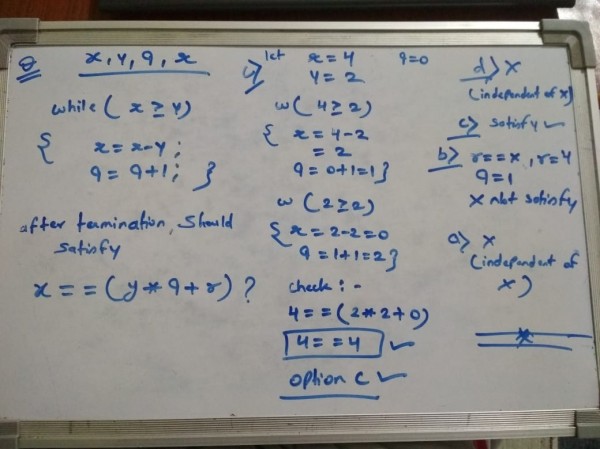 Q x, y, q, r
while ( r ≥ y )
{ r = r-y ;
q = q+1 ; }
after termination, should
satisfy
x = = ( y * q + r ) ?
c) let x = 4 q=0
y = 2
w ( 4 ≥ 2 )
{ r = 4-2
= 2
q = 0+1=1 }
w ( 2 ≥ 2 )
{ r = 2-2=0
q = 1+1=2 }
check : -
4 = = ( 2 * 2 + 0 )
4 = = 4 ✓
option c ✓
d) X
(independent of x)
c) satisfy ✓
b) r = = x , r = 4
q = 1
X not satisfy
a) X
(independent of
x)